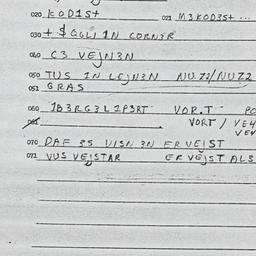 020 KOD1S+ 021 M3KOD3S+ ...
030 + $ QGLI 1N CORN3R
040 C3 VEJN3N
050 TUS 1N LEJN3N NUZZ/NUZZ
051 GRAS
060 1B3RG3L1P3RT VOR.T
VORT /
070 DAF 3S VISN 3N ERVEIST
071 VUS VEISTAR ERVEJST ALS